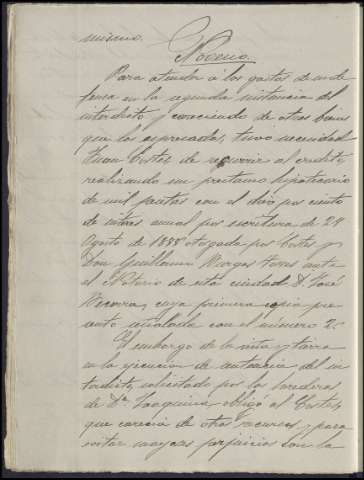 mismo.
Noveno.
Para atender á los gastos de su de
fensa en la segunda instancia del
interdicto y careciendo de otros bienes
que los expresados, tuvo necesidad
Juan Cortés de recurrir al credito,
realizando un prestamo hipotecario
de mil pesetas con el diez por ciento
de interes anual por escritura de 24
Agosto de 1885 otorgada por Cortés y
Don Guillermo Vargas ante
el Notario de esta ciudad D. José
cuya primera copia pre
sento señalada con el número 2º.
El embargo de la viña y tierra
en la ejecucion de sentencia del in
terdicto, solicitado por los herederos
de Dª Joaquina, obligó al Cortés,
que carecia de otros recursos, y para
evitar mayores perjuicios con la